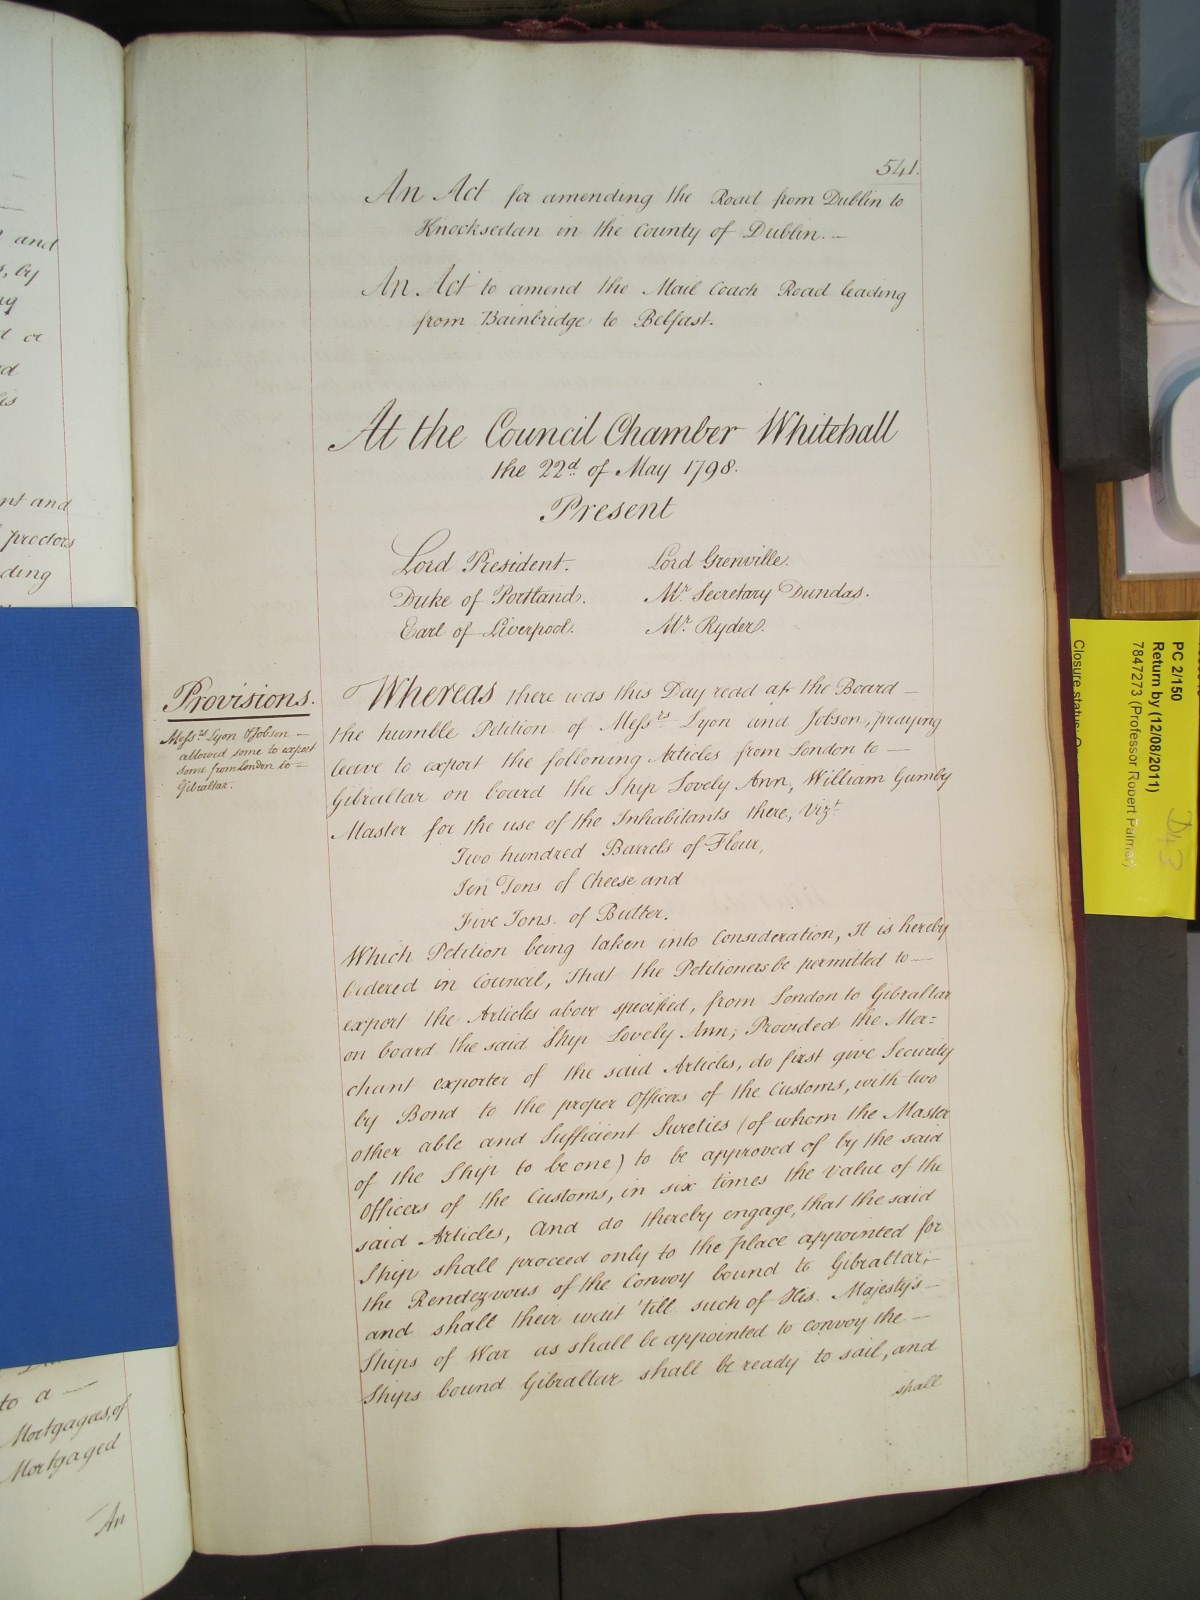 541.
An Act for amending the Road from Dublin to
Knocksedan in the County of Dublin. —
An Act to amend the Mail Coach Road leading
from Bainbridge to Belfast.
At the Council Chamber Whitehall
the 22d of May 1798.
Present
Lord President. Lord Grenville.
Duke of Portland. Mr Secretary Dundas.
Earl of Liverpool. Mr Ryder.
Provisions.
Messrs Lyon & Jobson —
allowed some to export
some from London to —
Gibraltar.
Whereas there was this Day read at the Board —
the humble Petition of Messrs Lyon and Jobson, praying
leave to export the following Articles from London to —
Gibraltar on board the Ship Lovely Ann, William Gumby
Master for the use of the Inhabitants there, Vizt
Two hundred Barrels of Flour,
Ten Tons of Cheese and
Five Tons of Butter.
Which Petition being taken into Consideration, It is hereby
Ordered in Council, That the Petitioners be permitted to —
export the Articles above specified, from London to Gibraltar
on board the said Ship Lovely Ann; Provided the Mer=
chant exporter of the said Articles, do first give Security
by Bond to the proper Officers of the Customs, with two
other able and Sufficient Sureties (of whom the Master
of the Ship to be one) to be approved of by the said
Officers of the Customs, in six times the value of the
said Articles, And do thereby engage, that the said
Ship shall proceed only to the place appointed for
the Rendezvous of the Convoy bound to Gibraltar, —
and shall their wait 'till such of His Majesty's —
Ships of War as shall be appointed to convoy the —
Ships bound Gibraltar shall be ready to sail, and
shall
and
, by
nt and
proctors
ding
to a —
Mortgages, of
Mortgaged
An
PC 2/150
Return by (12/08/2011)
7847273 (Professor Robert Palmer)
Closure status:
D43